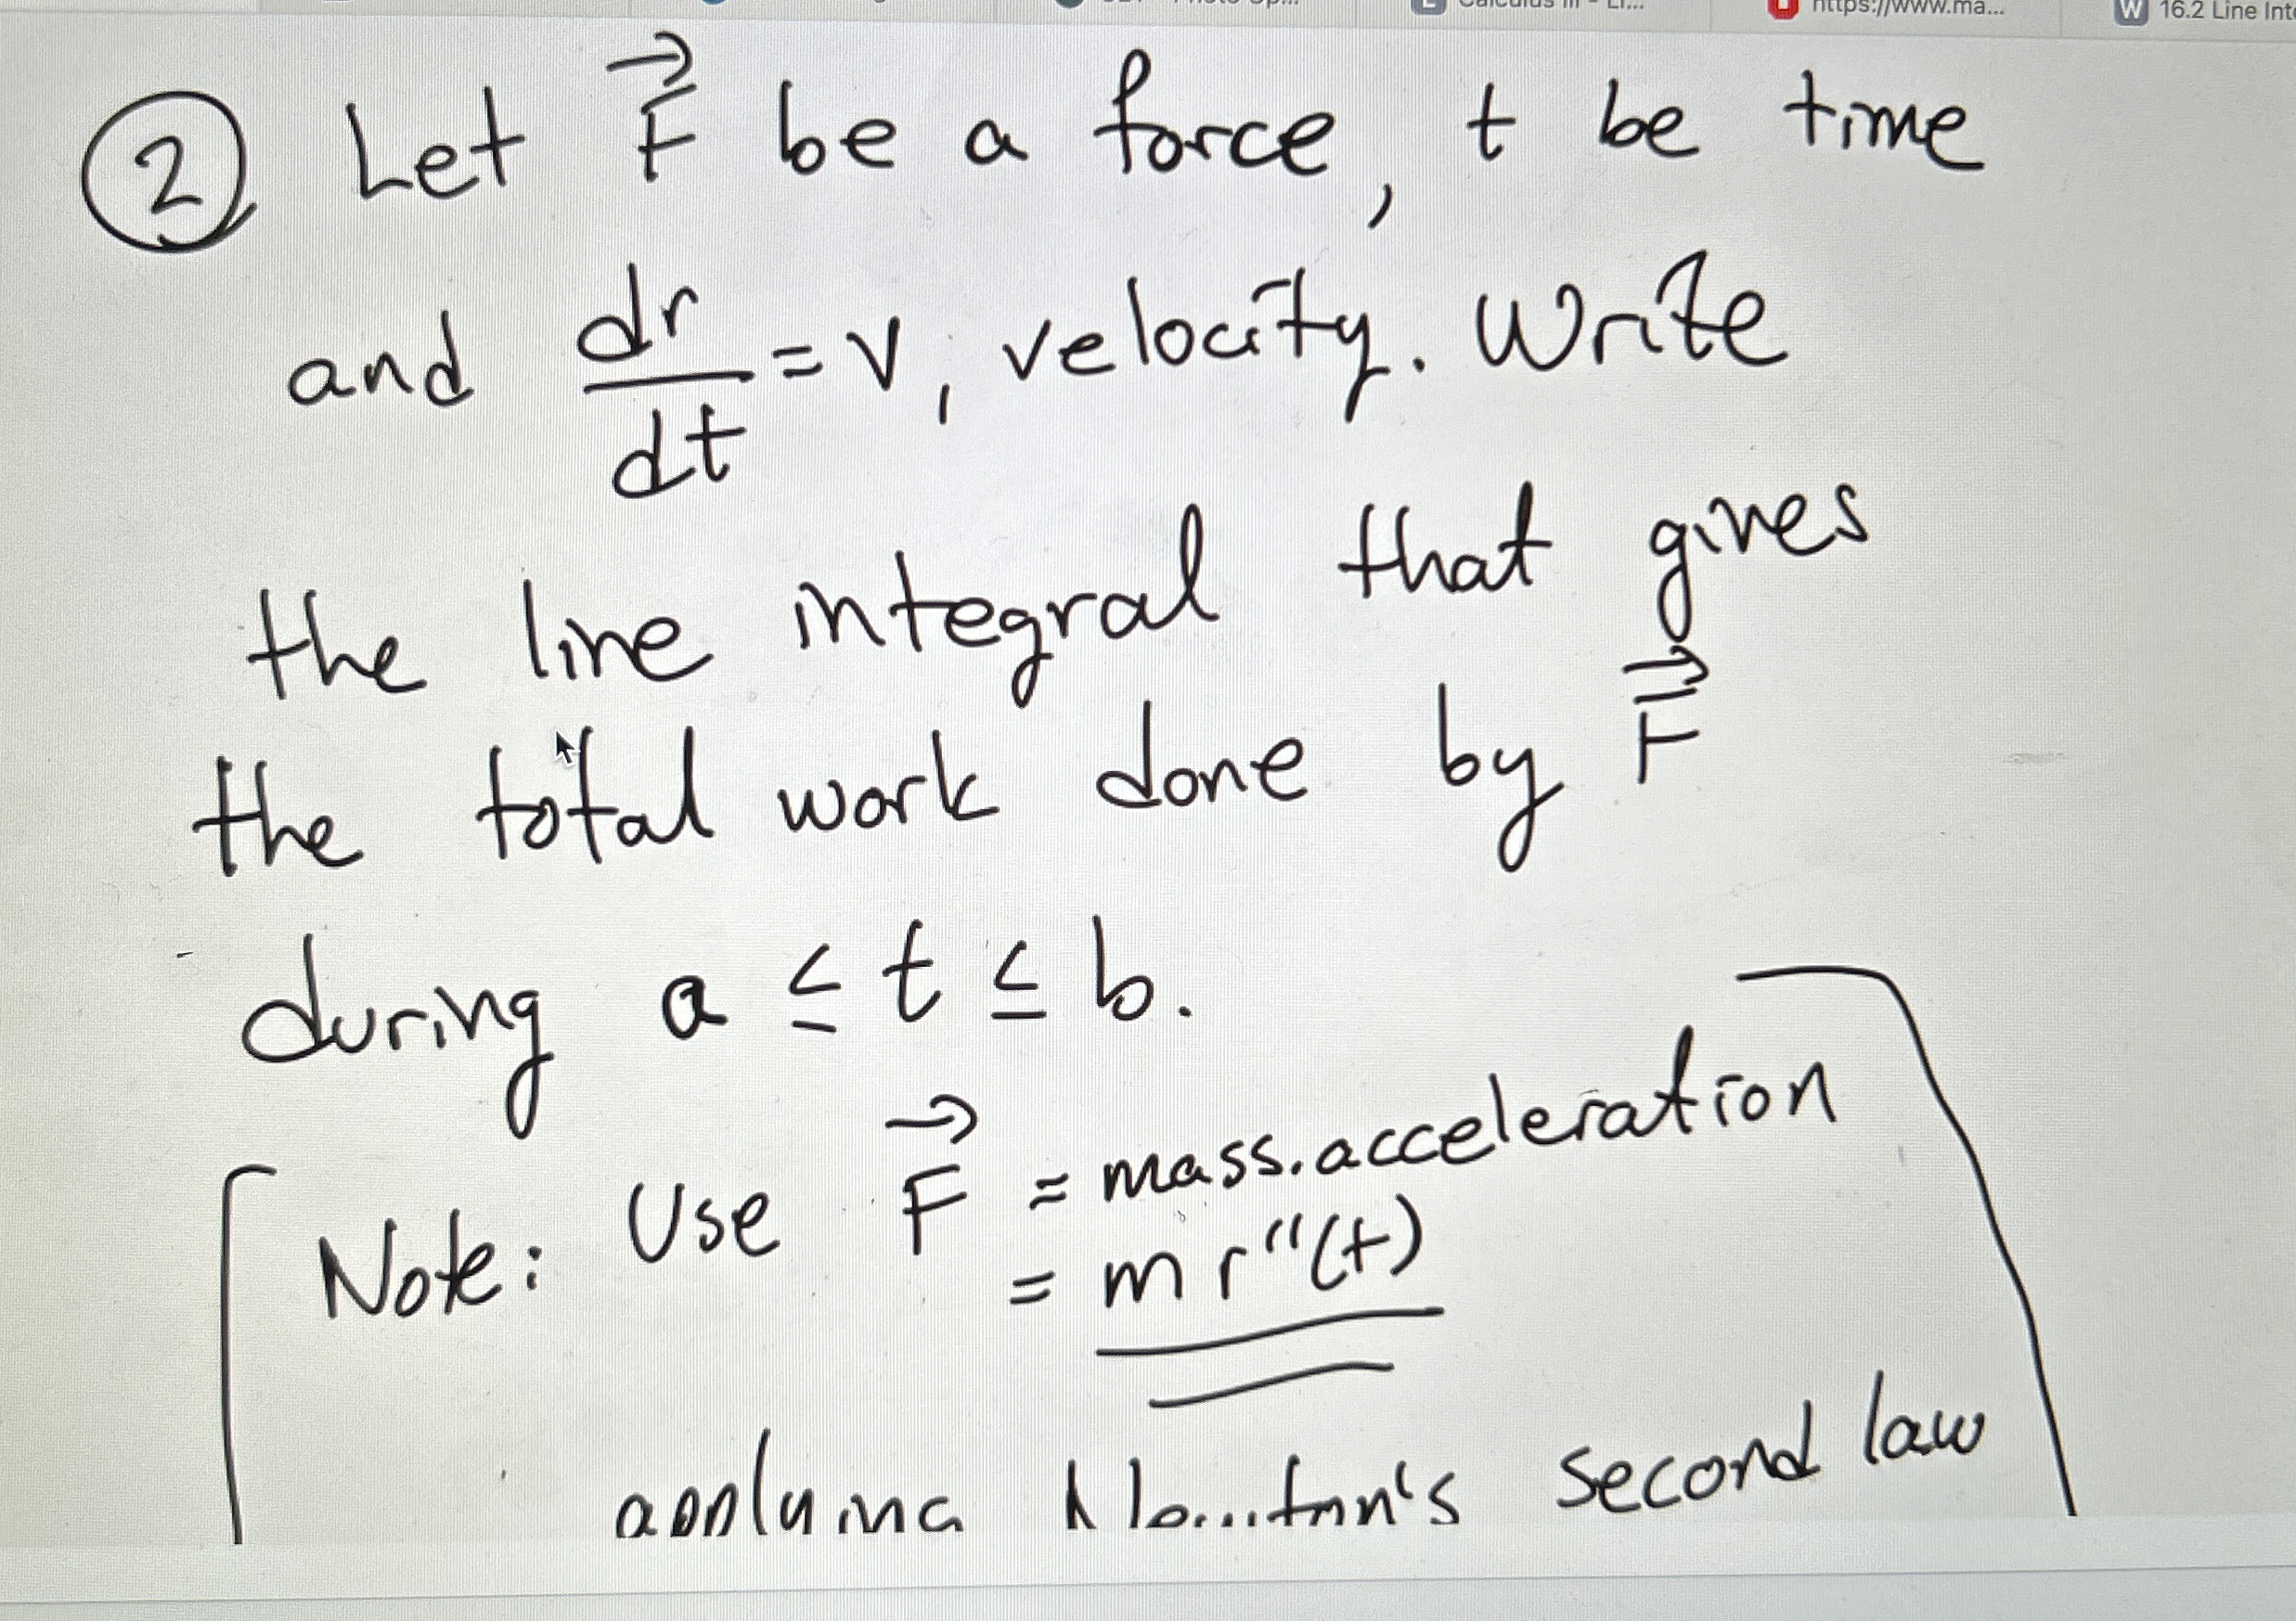 Calculus III - Li...
https://www.ma...
16.2 Line Int
② Let F⃗ be a force, t be time
and dr/dt = v, velocity. Write
the line integral that gives
the total work done by F⃗
during a ≤ t ≤ b.
Note: Use F⃗ = mass.acceleration
= m r''(t)
applying Newton's second law